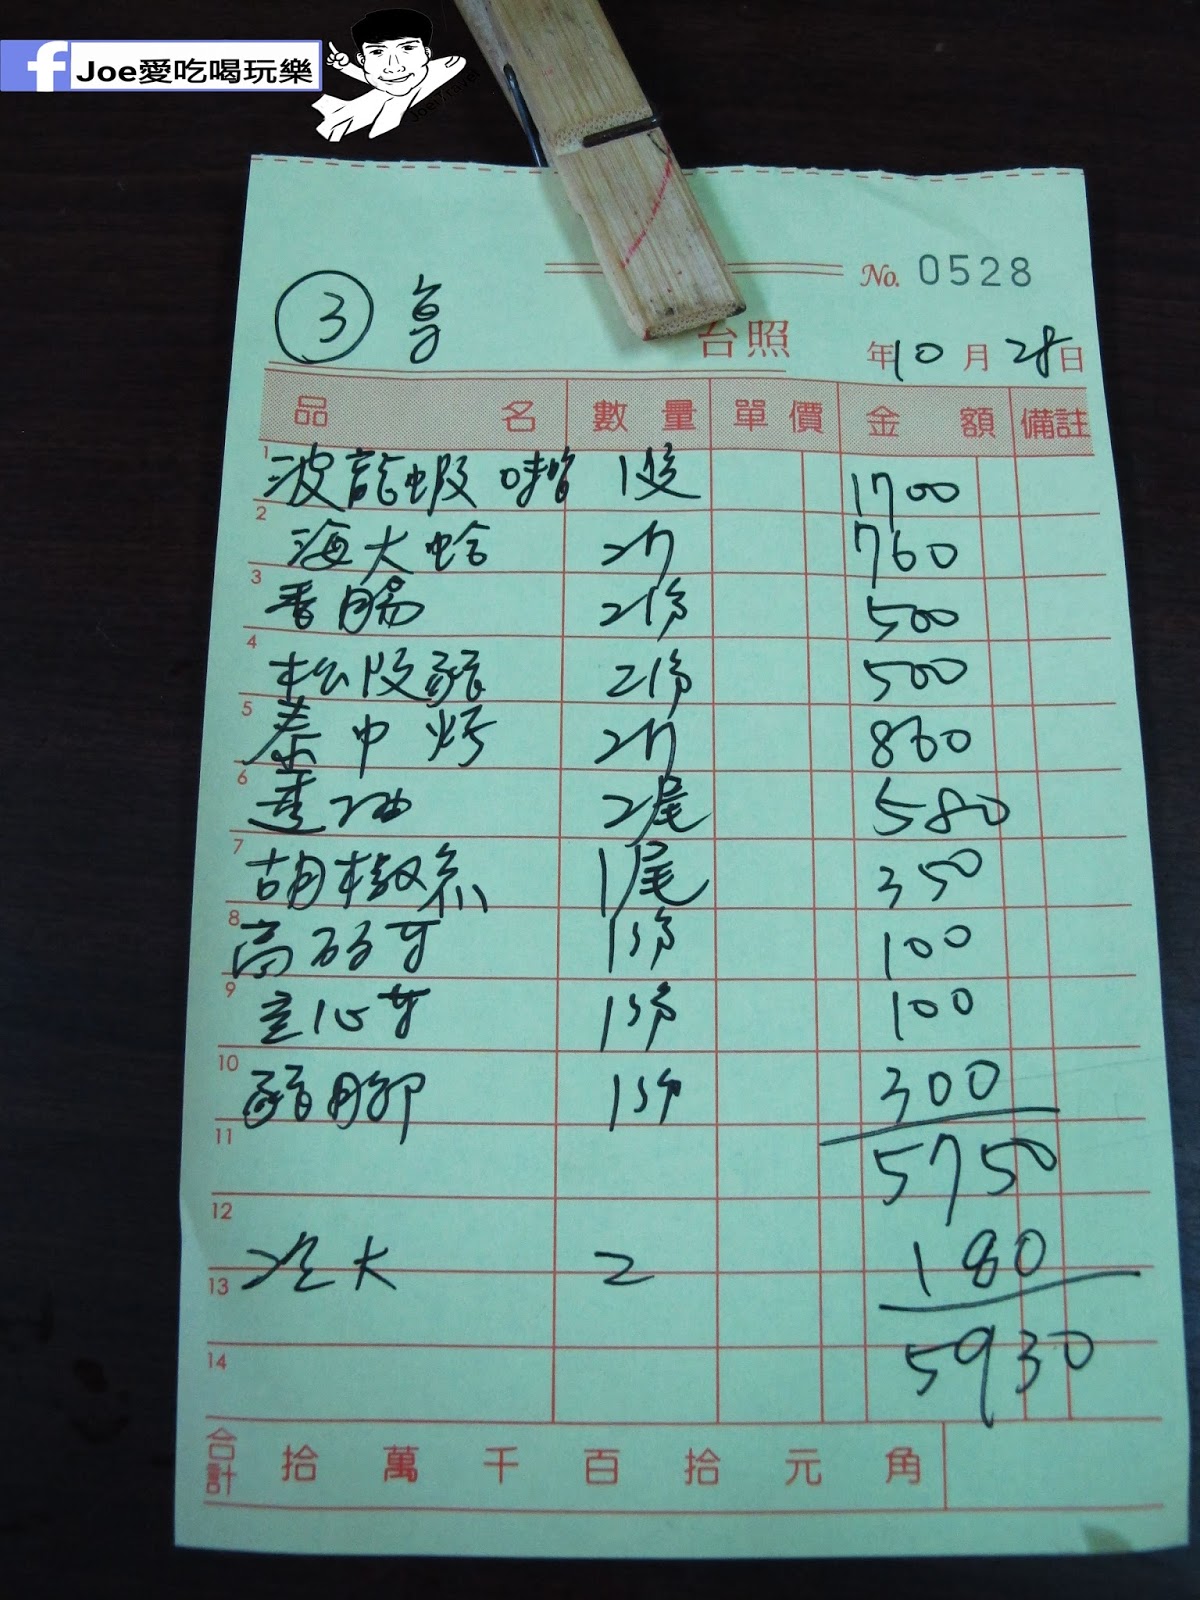 Joe愛吃喝玩樂
No. 0528
3
台照
年10月28日
品名 數量 單價 金額 備註
1 波龍蝦 1隻 1700
2 海大蛤 2斤 760
3 香腸 2份 500
4 松阪豬 2份 500
5 泰中 2斤 860
6 2尾 580
7 胡椒 1尾 350
8 1份 100
9 空心 1份 100
10 豬腳 1份 300
11 5750
12 180
13 大 2
5930
14
合計 拾 萬 千 百 拾 元 角